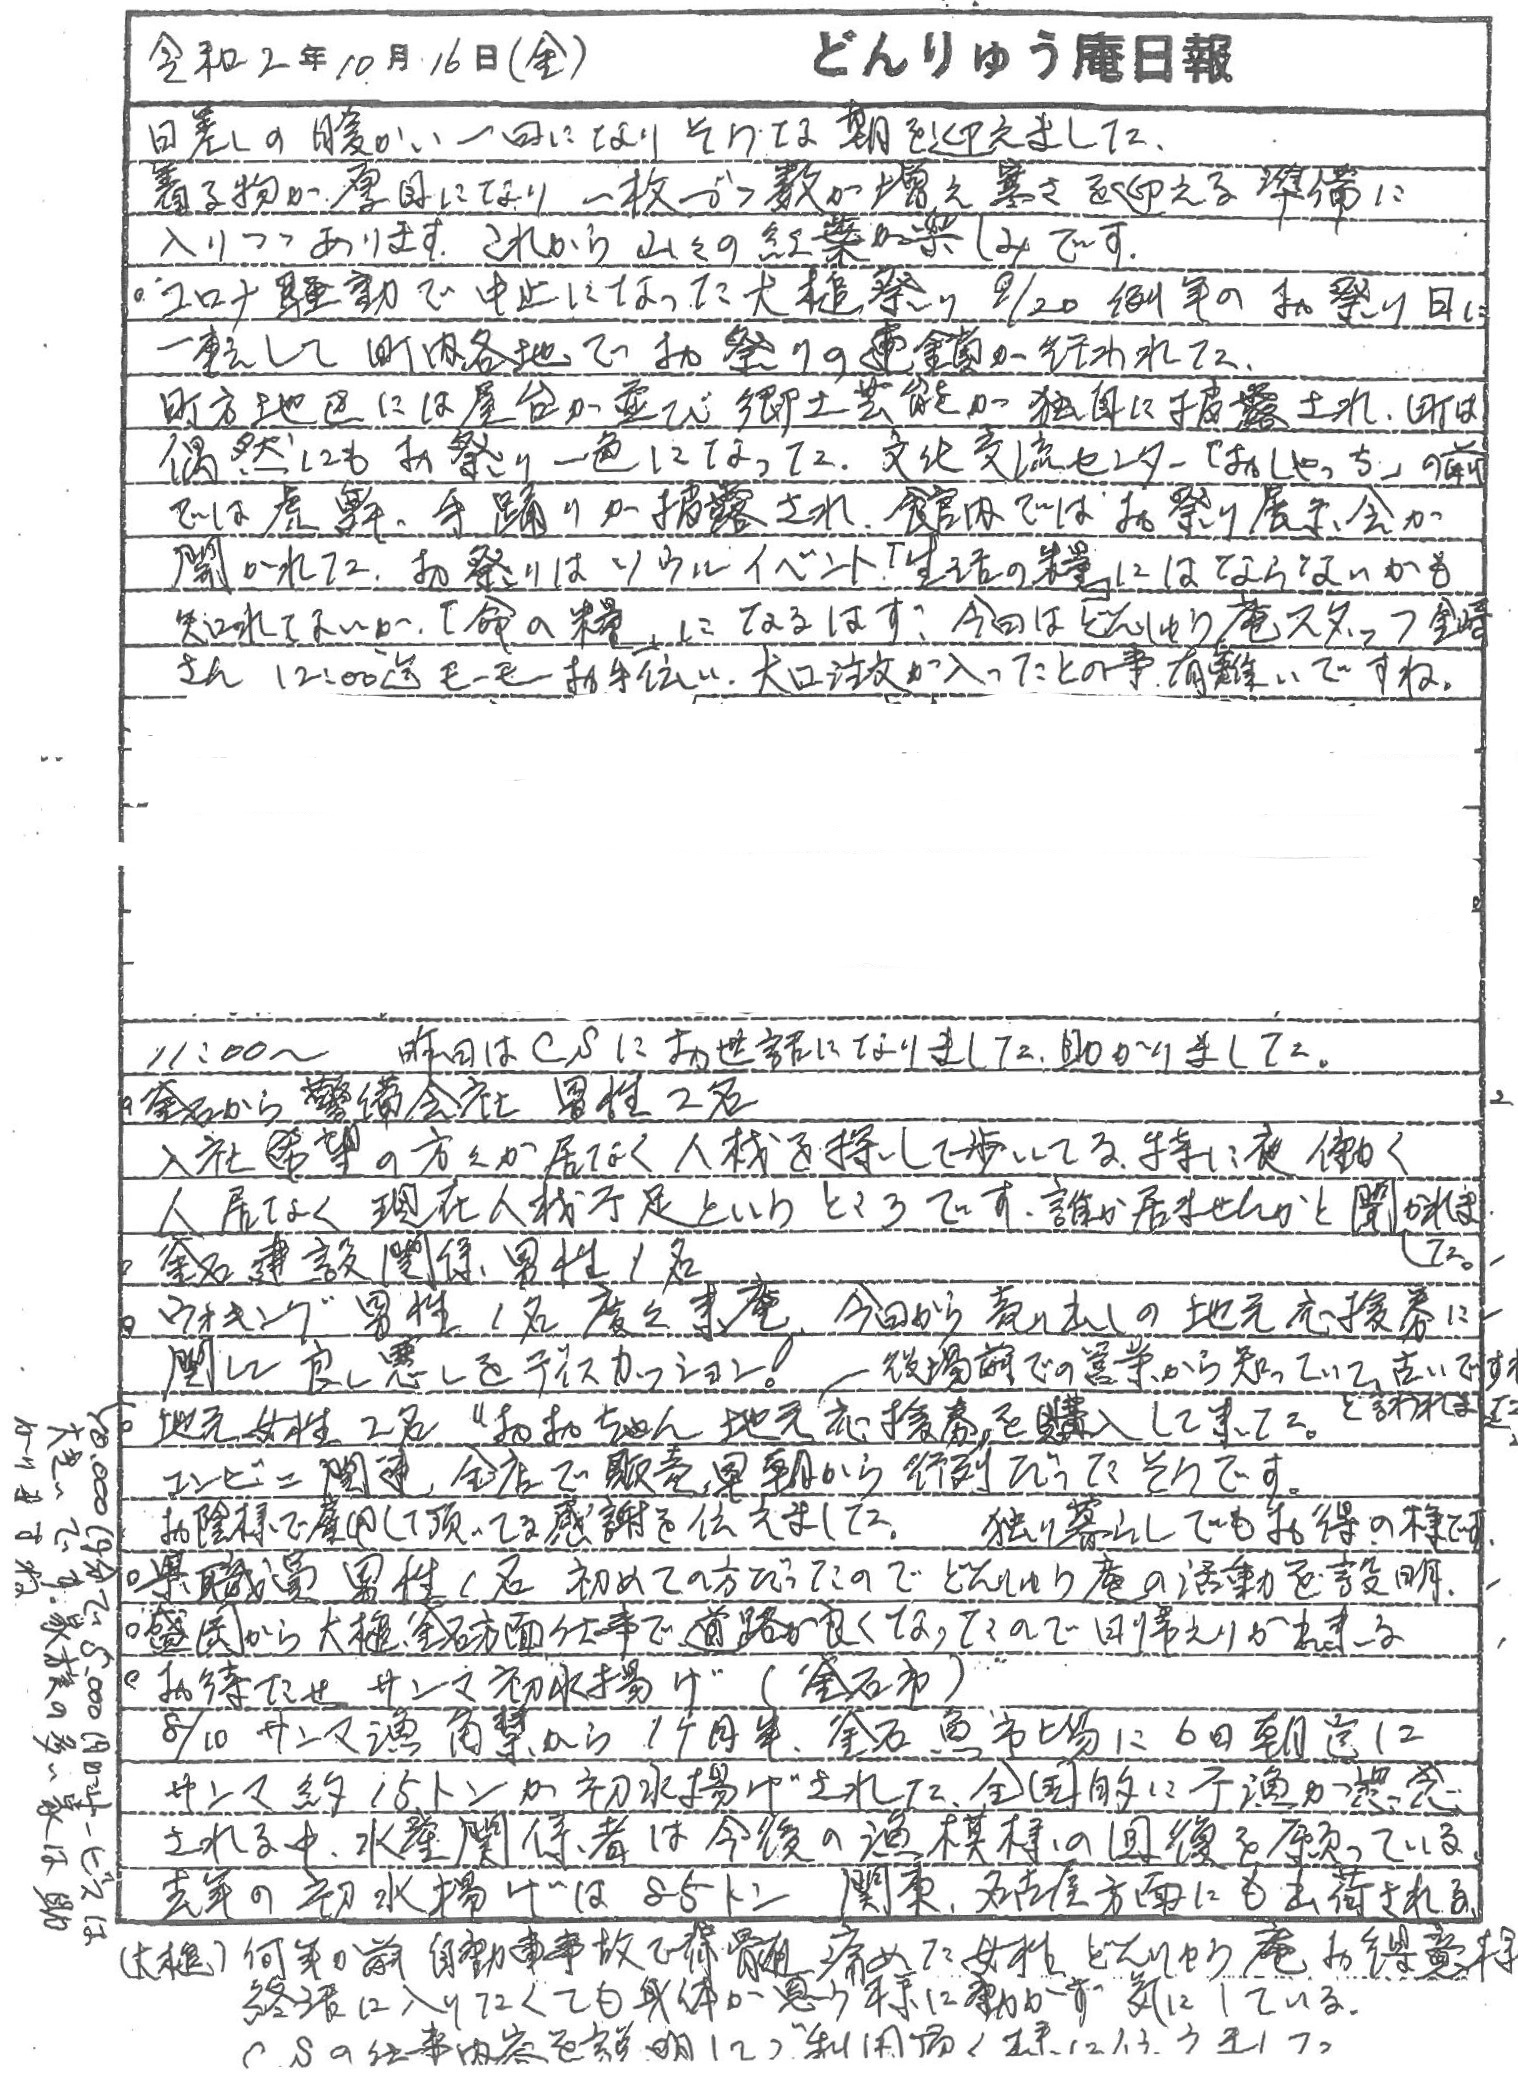 令和2年10月16日(金) どんりゅう庵日報
日差しの暖かい一日になりそうな朝を迎えました。
着る物が厚目になり一枚づつ数が増え寒さを迎える準備に
入りつつあります。これから山々の紅葉が楽しみです。
○コロナ騒動で中止になった大槌祭り 9/20 例年のお祭り日に
一転して町内各地でお祭りの連鎖が行われた。
町方地区には屋台が並び郷土芸能が独自に披露され、町は
偶然にもお祭り一色になった。文化交流センター「おしゃっち」の前
では虎舞、手踊りが披露され、館内ではお祭り展示会が
開かれた。お祭りはソウルイベント「生活の糧」にはならないかも
知れてないが、「命の糧」になるはず。今日はどんりゅう庵スタッフ金崎
さん 12:00迄モーモーお手伝い。大口注文が入ったとの事、有難いですね。
11:00〜 昨日はCSにお世話になりました、助かりました。
○釜石から警備会社 男性2名
入社希望の方々が居なく人材を探して歩いてる、特に夜働く
人居なく現在人材不足というところです。誰か居ませんかと聞かれま
した。
○釜石建設関係 男性1名
○ウオキング 男性1名 度々来庵、今日から売り出しの地元応援券に
関して良し悪しをディスカッション! 役場前での営業から知っていて、古いですね
と言われました。
○地元女性2名 "おおちゃん地元応援券"を購入して来た。
コンビニ関連、全店で販売、早朝から行列だったそうです。
お陰様で雇用して頂いてる感謝を伝えました。 独り暮らしでもお得の様です。
10,000円分で5,000円サービスは
大きいです。家族の多い家は助
かりますね
○県職員 男性1名 初めての方だったのでどんりゅう庵の活動を説明。
○盛岡から大槌、釜石方面仕事で、道路が良くなったので日帰えりが出来る
○お待たせ サンマ初水揚げ (釜石市)
8/10 サンマ漁解禁から1ヶ月半、釜石魚市場に6日朝迄に
サンマ約15トンが初水揚げされた、全国的に不漁が懸念
される中、水産関係者は今後の漁模様の回復を願っている。
去年の初水揚げは85トン 関東、名古屋方面にも出荷される。
(大槌) 何年か前自動車事故で脊髄痛めた女性 どんりゅう庵お得意様
終活に入りたくても身体が思う様に動かず気にしている。
CSの仕事内容を説明してご利用頂く様に